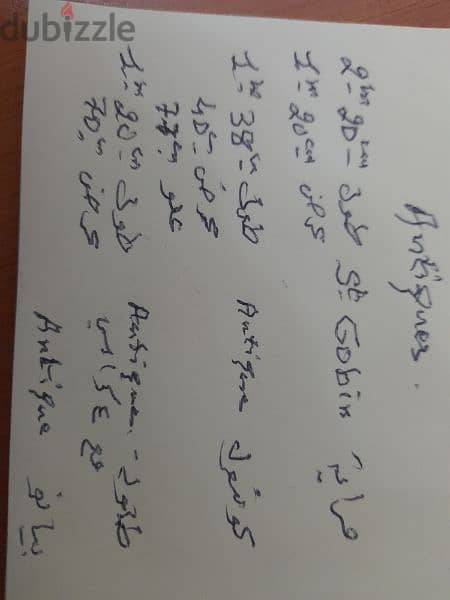 dubizzle
Antiques.
2m-20cm طول St Gobin مراية
1m-20cm عرض
1m-38cm طول Antique كونسول
40cm عرض
77cm علو
1m-20cm طول Antiques - طاولة
70cm عرض مع ٤
Antique بيانو